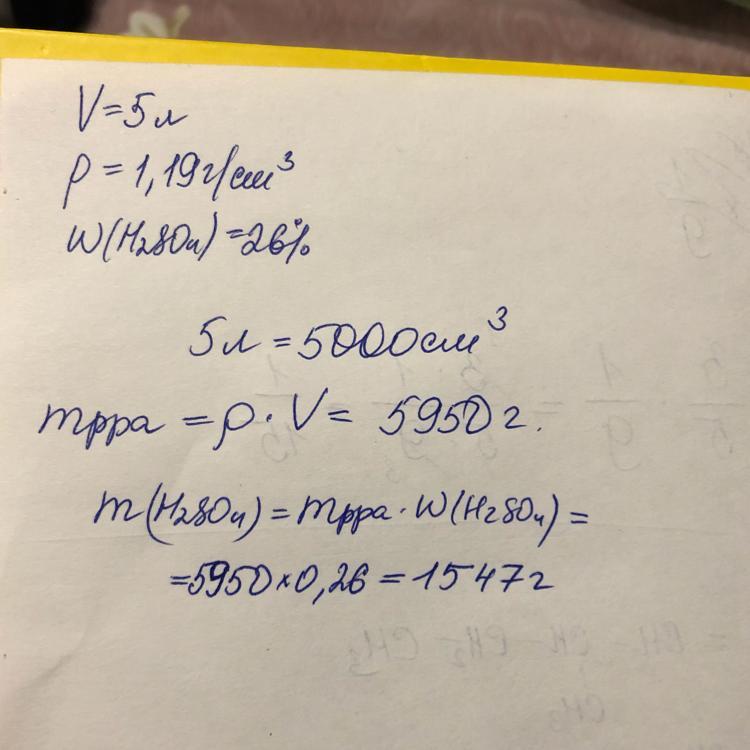 V=5л
ρ=1,19г/см³
W(H₂SO₄)=26%
5л=5000см³
mрра=ρ·V= 5950г.
m(H₂SO₄)=mрра·W(H₂SO₄)=
=5950×0,26=1547г